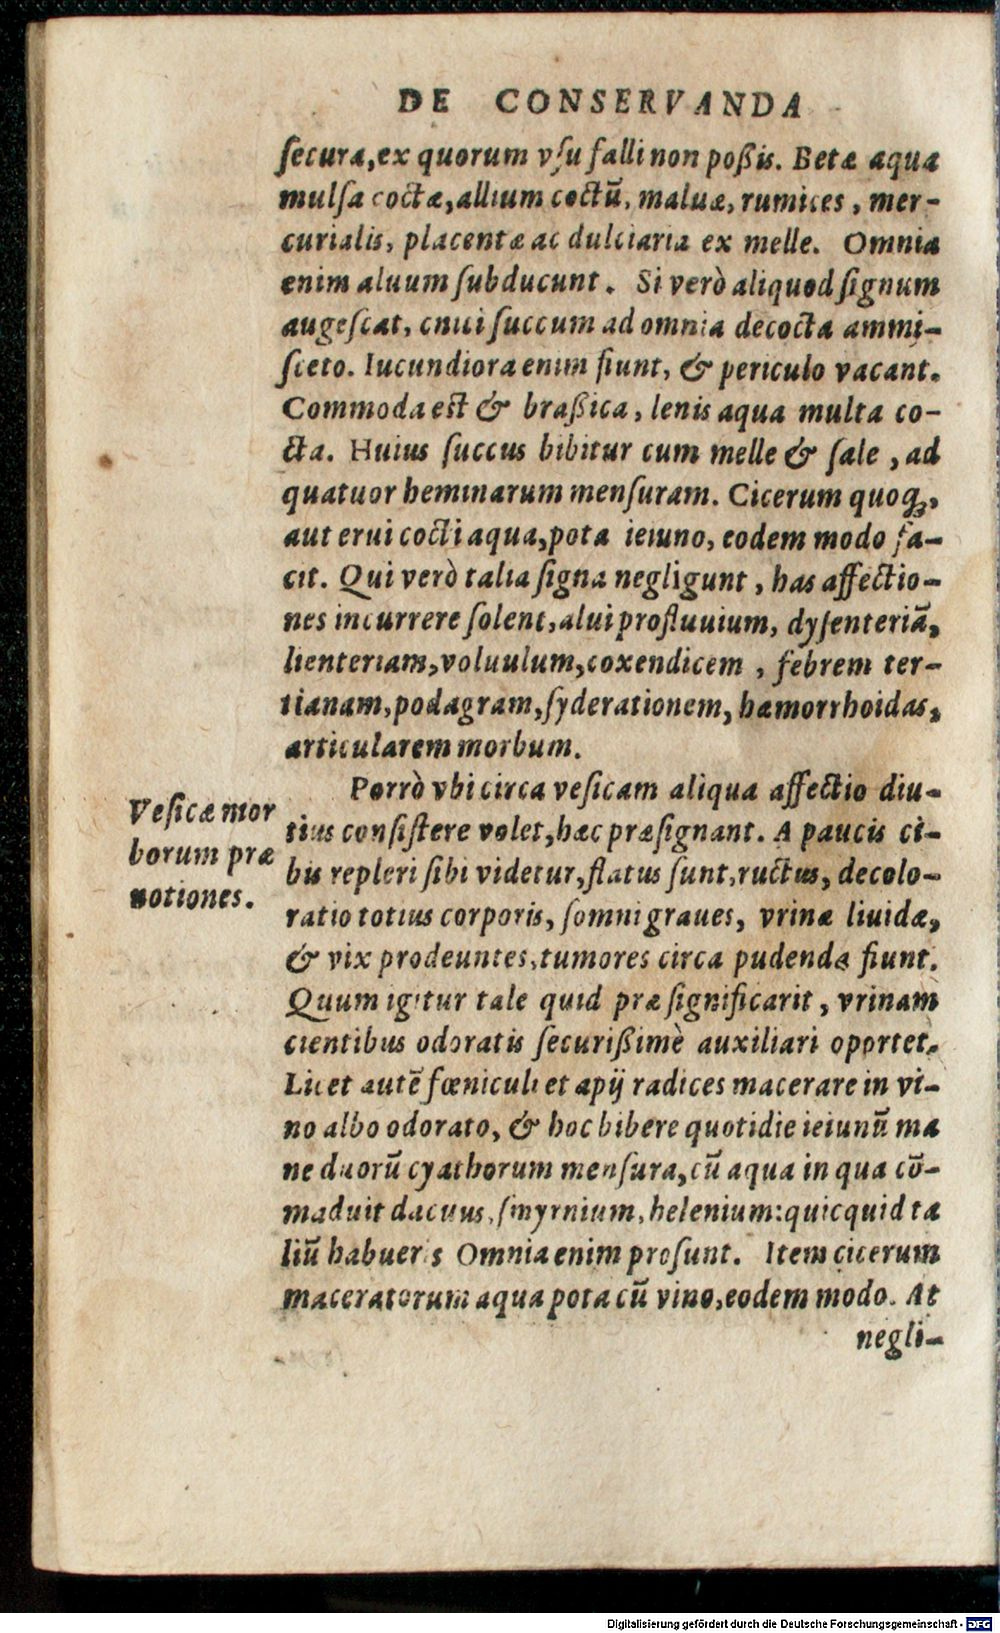 DE CONSERVANDA
ſecura, ex quorum vſu falli non poßis. Betæ aqua
mulſa coctæ, allium coctũ, maluæ, rumices, mer-
curialis, placentæ ac dulciaria ex melle. Omnia
enim aluum ſubducunt. Si verò aliquod ſignum
augeſcat, cnici ſuccum ad omnia decocta ammi-
ſceto. Iucundiora enim fiunt, & periculo vacant.
Commoda est & braßica, lenis aqua multa co-
cta. Huius ſuccus bibitur cum melle & ſale, ad
quatuor heminarum menſuram. Cicerum quoq;,
aut erui cocti aqua, pota ieiuno, eodem modo fa-
cit. Qui verò talia ſigna negligunt, has affectio-
nes incurrere ſolent, alui profluuium, dyſenteriã,
lienteriam, voluulum, coxendicem, febrem ter-
tianam, podagram, ſyderationem, hæmorrhoidas,
articularem morbum.
Porrò vbi circa veſicam aliqua affectio diu-
Veſicæ mor
borum præ
notiones.
tius conſiſtere volet, hæc præſignant. A paucis ci-
bis repleri ſibi videtur, flatus ſunt, ructus, decolo-
ratio totius corporis, ſomni graues, vrinæ liuidæ,
& vix prodeuntes, tumores circa pudenda fiunt.
Quum igitur tale quid præſignificarit, vrinam
cientibus odoratis ſecurißimè auxiliari oportet.
Licet autẽ fœniculi et apij radices macerare in vi-
no albo odorato, & hoc bibere quotidie ieiunũ ma
ne duorũ cyathorum menſura, cũ aqua in qua cõ-
maduit dacuus, ſmyrnium, helenium: quicquid ta
liũ habueris Omnia enim proſunt. Item cicerum
maceratorum aqua pota cũ vino, eodem modo. At
negli-
Digitalisierung gefördert durch die Deutsche Forschungsgemeinschaft - DFG